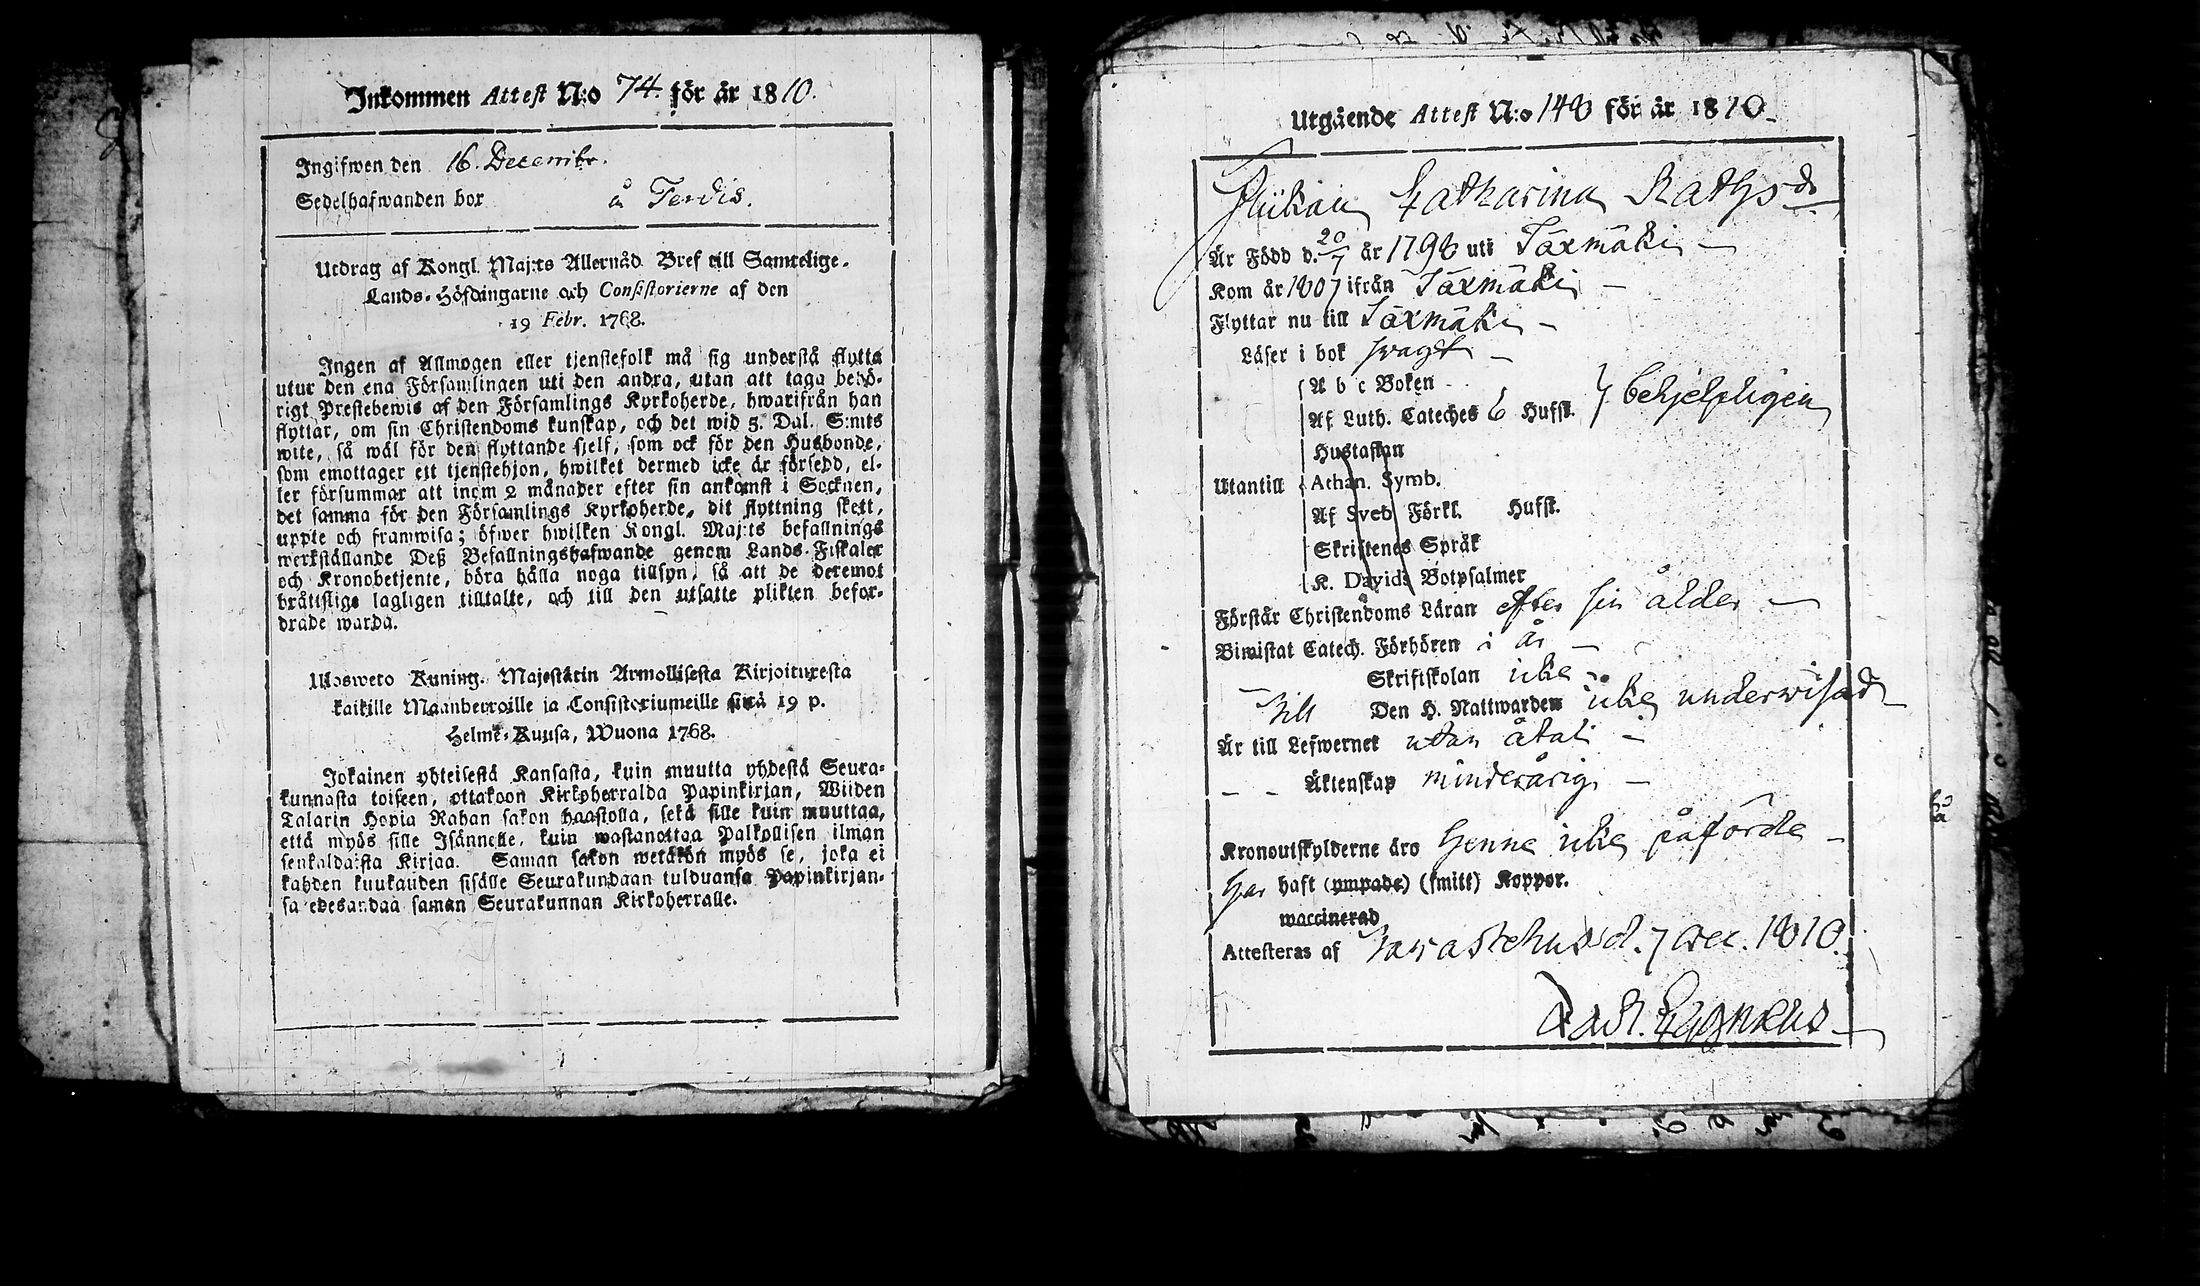 Inkommen Attest N:o 74. för år 1810.
Ingifwen den 16. Decembr.
Sedelhafwanden bor å Terdis.
Utdrag af Kongl. Maj:ts Allernåd. Bref till Samtelige
Lands-Höfdingarne och Consistorierne af den
19 Febr. 1768.
Ingen af Allmogen eller tjenstefolk må sig understå flytta
utur den ena Församlingen uti den andra, utan att taga behö-
rigt Prestebewis af den Församlings Kyrkoherde, hwarifrån han
flyttar, om sin Christendoms kunskap, och det wid 5. Dal. S:mts
wite, så wäl för den flyttande sjelf, som ock för den Husbonde,
som emottager ett tjenstehjon, hwilket dermed icke är försedd, el-
ler försummar att inom 2 månader efter sin ankomst i Socknen,
det samma för den Församlings Kyrkoherde, dit flyttning skett,
uppte och framwisa; öfwer hwilken Kongl. Maj:ts befallnings
werkställande Deß Befallningshafwande genom Lands-Fiskaler
och Kronobetjente, böra hålla noga tillsyn, så att de deremot
bråttslige lagligen tilltalte, och till den utsatte plikten befor-
drade warda.
Ulosweto Kuning. Majestätin Armollisesta Kirjoituxesta
kaikille Maanherroille ja Consistoriumeille sinä 19 p.
Helme-Kuusa, Wuona 1768.
Jokainen yhteisestä Kansasta, kuin muutta yhdestä Seura-
kunnasta toiseen, ottakoon Kirkoherralda Papinkirjan, Wiiden
Talarin Hopia Rahan sakon haastolla, sekä sille kuin muuttaa,
että myös sille Isännelle, kuin wastanottaa Palkollisen ilman
senkaldaista Kirjaa. Saman sakon wetäkön myös se, joka ei
kahden kuukauden sisälle Seurakundaan tulduansa Papinkirjan-
sa edesandaa saman Seurakunnan Kirkoherralle.
Utgående Attest N:o 148 för år 1810
Flickan Catharina Mathsdr
Är Född d. 20/7 år 1798 uti Säxmäki
Kom år 1807 ifrån Säxmäki
Flyttar nu till Säxmäki
Läser i bok swagt
A b c Boken
Af Luth. Cateches 6 Hufst. } behjelpligen
Hustaflan
Utantill Athan. Symb.
Af Sveb Förkl. Hufst.
Skriftenes Språk
K. Davids Botpsalmer
Förstår Christendoms Läran efter sin ålder
Biwistat Catech. Förhören i år
Skriftskolan icke
Till Den H. Nattwarden icke underwisad
Är till Lefwernet utan åtal
Äktenskap minderårig
Kronoutskylderne äro henne icke påförde
Har haft (ympade) (smitt) Koppor.
waccinerad
Attesteras af Tawastehus d. 7 Dec. 1810.